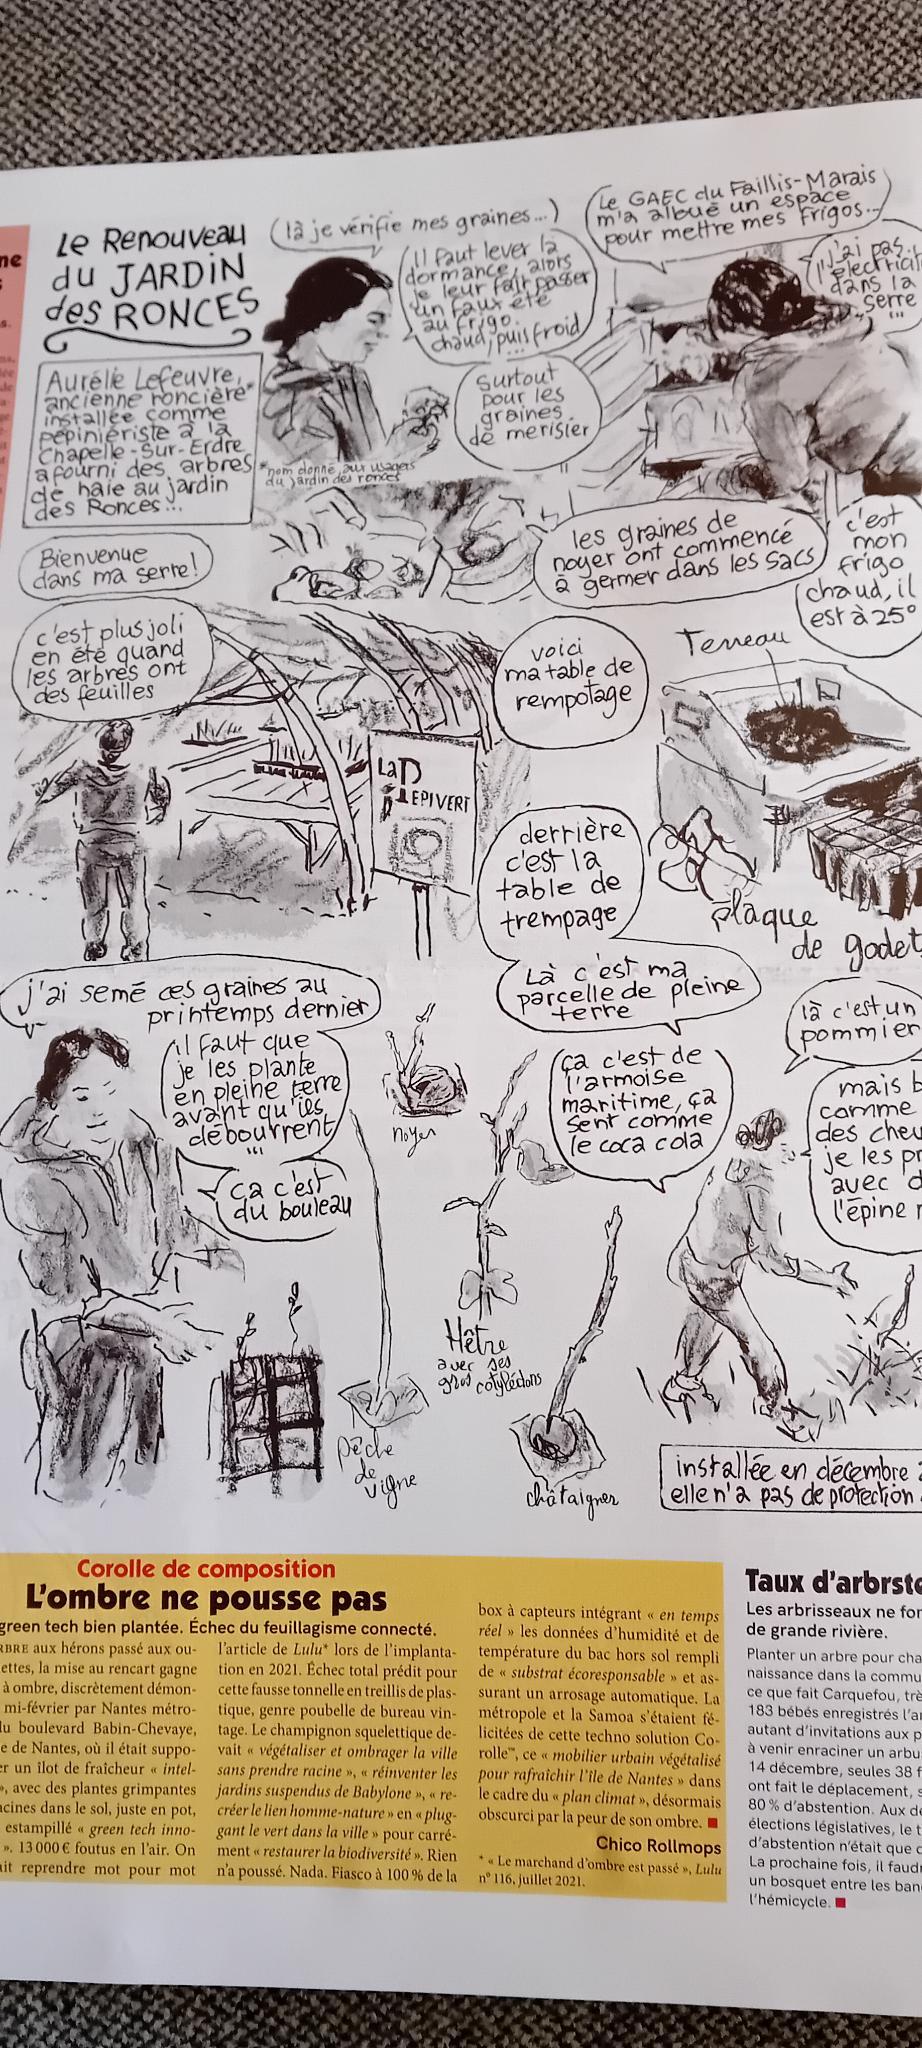 Le Renouveau
du JARDIN
des RONCES
Aurélie Lefeuvre,
ancienne roncière*
installée comme
pépiniériste à la
Chapelle-Sur-Erdre
a fourni des arbres
de haie au jardin
des Ronces...
(là je vérifie mes graines...)
Il faut lever la
dormance, alors
je leur fait passer
un faux été
au frigo.
chaud, puis froid
...
Surtout
pour les
graines
de merisier
*nom donné aux usagers
du jardin des ronces
Le GAEC du Faillis-Marais
m'a alloué un espace
pour mettre mes frigos...
j'ai pas
l'électricité
dans la
serre
...
les graines de
noyer ont commencé
à germer dans les sacs
c'est
mon
frigo
chaud, il
est à 25°
Bienvenue
dans ma serre!
c'est plus joli
en été quand
les arbres ont
des feuilles
LaP
EPIVERT
voici
ma table de
rempotage
Terreau
plaque
de godet
derrière
c'est la
table de
trempage
Là c'est ma
parcelle de pleine
terre
j'ai semé ces graines au
printemps dernier
il faut que
je les plante
en pleine terre
avant qu'ils
débourrent
...
ça c'est
du bouleau
noyer
pêche
de
vigne
Hêtre
avec ses
gros cotylédons
châtaigner
ça c'est de
l'armoise
maritime, ça
sent comme
le coca cola
là c'est un
pommier
mais
comme
des
je les
avec
l'épine
installée en décembre
elle n'a pas de protection
Corolle de composition
L'ombre ne pousse pas
green tech bien plantée. Échec du feuillagisme connecté.
aux hérons passé aux ou-
ettes, la mise au rencart gagne
à ombre, discrètement démon-
mi-février par Nantes métro-
du boulevard Babin-Chevaye,
e de Nantes, où il était suppo-
er un îlot de fraîcheur « intel-
», avec des plantes grimpantes
acines dans le sol, juste en pot,
estampillé « green tech inno-
». 13 000 € foutus en l'air. On
ait reprendre mot pour mot
l'article de Lulu* lors de l'implanta-
tion en 2021. Échec total prédit pour
cette fausse tonnelle en treillis de plas-
tique, genre poubelle de bureau vin-
tage. Le champignon squelettique de-
vait « végétaliser et ombrager la ville
sans prendre racine », « réinventer les
jardins suspendus de Babylone », « re-
créer le lien homme-nature » en « plug-
gant le vert dans la ville » pour carré-
ment « restaurer la biodiversité ». Rien
n'a poussé. Nada. Fiasco à 100 % de la
box à capteurs intégrant « en temps
réel » les données d'humidité et de
température du bac hors sol rempli
de « substrat écoresponsable » et as-
surant un arrosage automatique. La
métropole et la Samoa s'étaient fé-
licitées de cette techno solution Co-
rolle™, ce « mobilier urbain végétalisé
pour rafraîchir l'île de Nantes » dans
le cadre du « plan climat », désormais
obscurci par la peur de son ombre. ■
Chico Rollmops
* « Le marchand d'ombre est passé », Lulu
n° 116, juillet 2021.
Taux d'arbrste
Les arbrisseaux ne fo
de grande rivière.
Planter un arbre pour cha
naissance dans la commu
ce que fait Carquefou, trè
183 bébés enregistrés l'a
autant d'invitations aux p
à venir enraciner un arbu
14 décembre, seules 38 f
ont fait le déplacement, s
80 % d'abstention. Aux d
élections législatives, le t
d'abstention n'était que
La prochaine fois, il faud
un bosquet entre les ban
l'hémicycle. ■